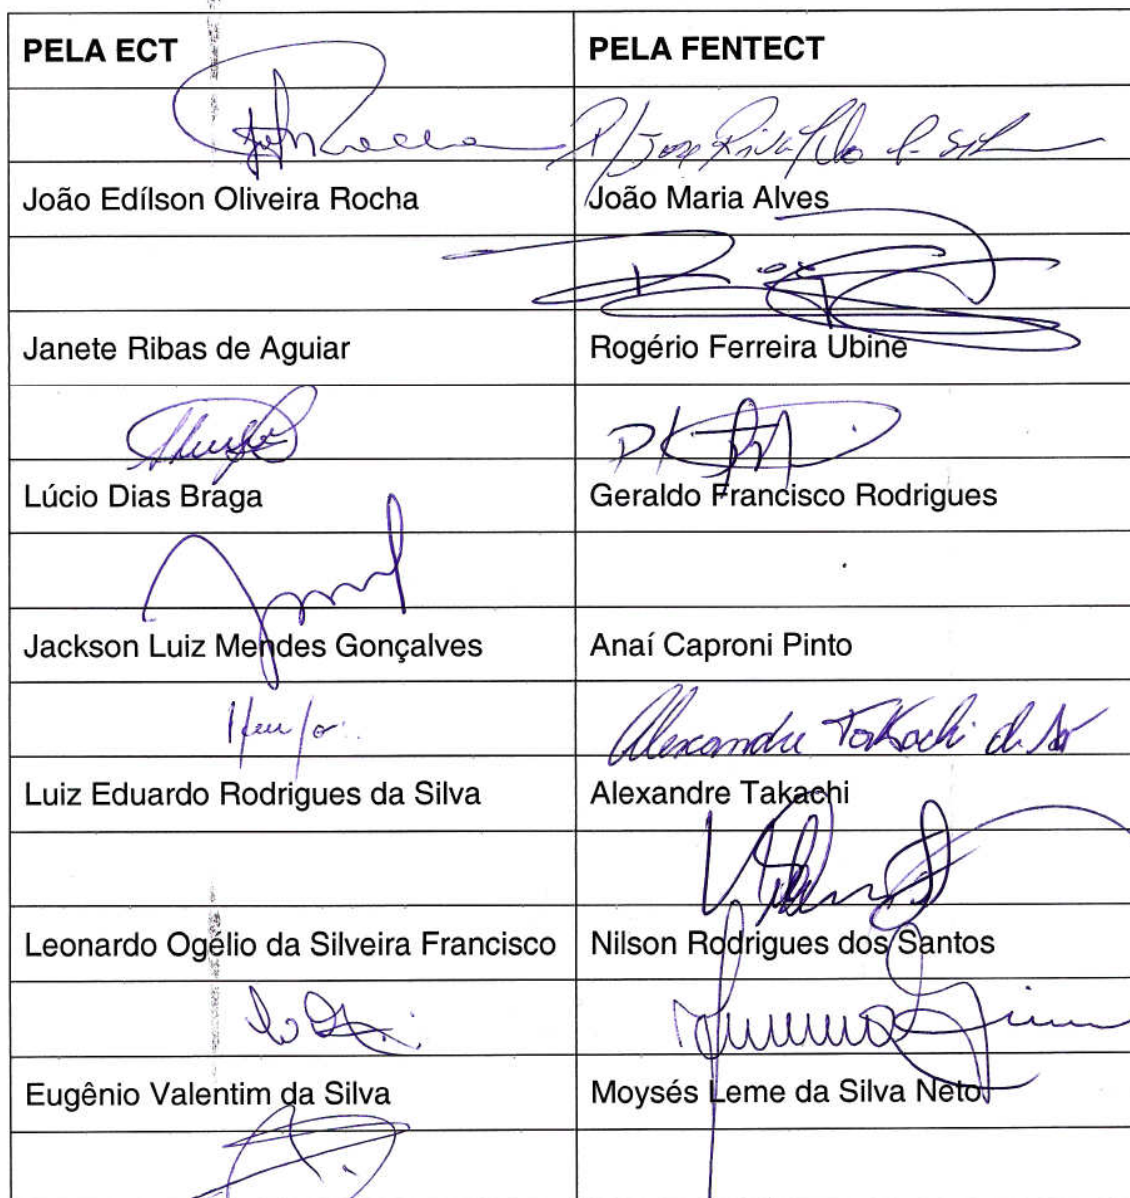 PELA ECT PELA FENTECT
P/ José Rivaldo da Silva
João Edílson Oliveira Rocha João Maria Alves
Janete Ribas de Aguiar Rogério Ferreira Ubine
P/
Lúcio Dias Braga Geraldo Francisco Rodrigues
Jackson Luiz Mendes Gonçalves Anaí Caproni Pinto
Alexandre Takachi de Sá
Luiz Eduardo Rodrigues da Silva Alexandre Takachi
Leonardo Ogélio da Silveira Francisco Nilson Rodrigues dos Santos
Eugênio Valentim da Silva Moysés Leme da Silva Neto